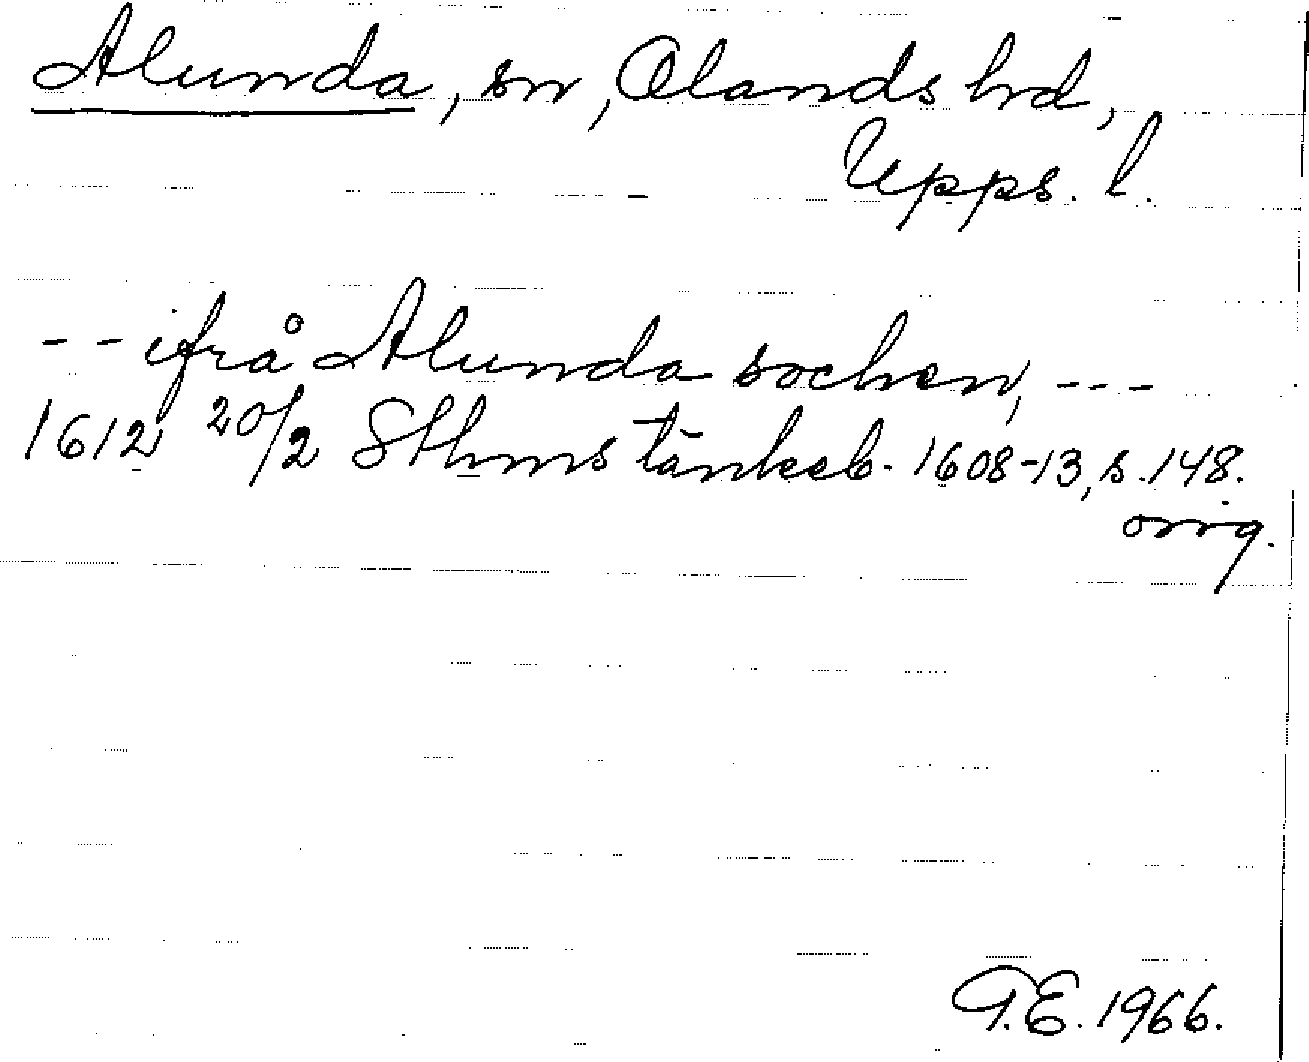 Alunda, sn, Olands hd,
Upps. l.
-- ifrå Alunda sochen, ---
1612 20/2 Sthms tänkeb. 1608-13, s. 148.
orig.
G.E. 1966.